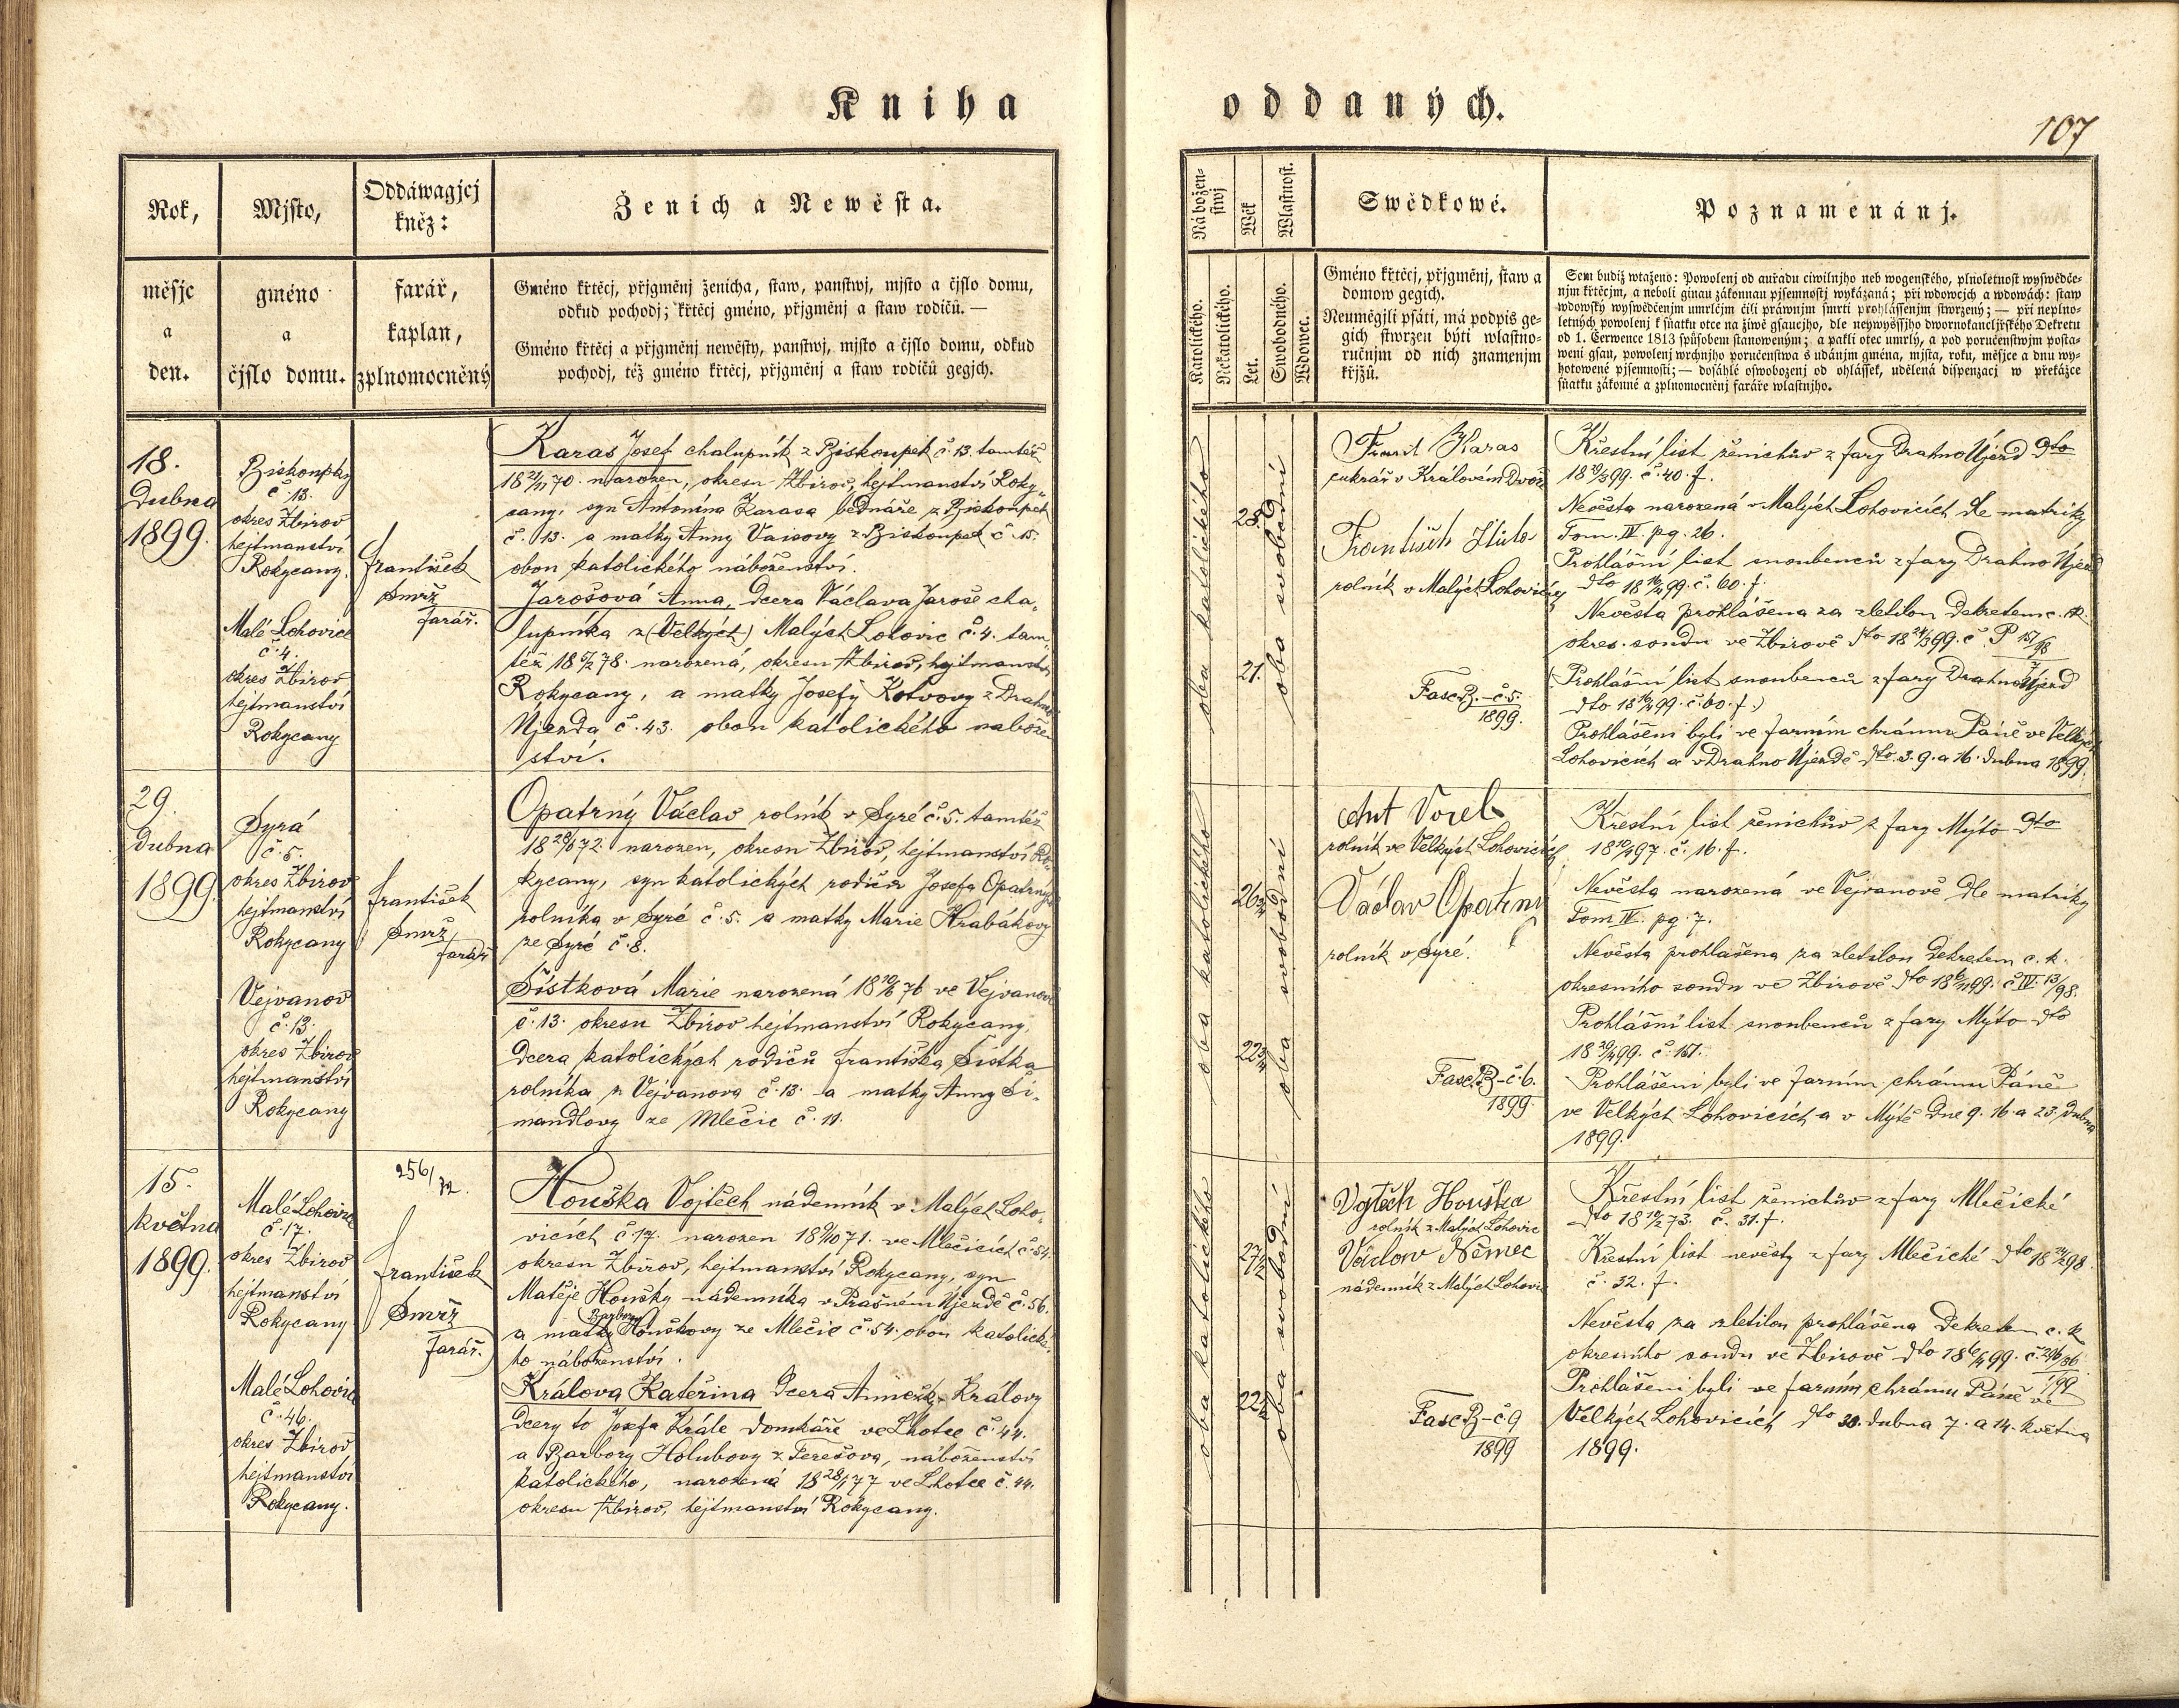 Kniha
oddaných.
107
Rok,
měsjc
a
den.
Mjsto,
gméno
a
čjslo domu.
Oddáwagjcj
kněz:
farář,
kaplan,
zplnomocněný
Ženich a Newěsta.
Gméno křtěcj, přjgměnj ženicha, staw, panstwj, mjsto a čjslo domu,
odkud pochodj; křtěcj gméno, přjgměnj a staw rodičů. —
Gméno křtěcj a přjgměnj newěsty, panstwj, mjsto a čjslo domu, odkud
pochodj, též gméno křtěcj, přjgměnj a staw rodičů gegjch.
Nábožen-
stwj
Katolického.
Nekatolického.
Wěk
Let.
Wlastnost.
Swobodného.
Wdowec.
Swědkowé.
Gméno křtěcj, přjgměnj, staw a
domow gegich.
Neumégili psáti, má podpis ge-
gich stwrzen býti wlastno-
ručnjm od nich znamenjm
křjžů.
Poznamenánj.
Sem budiž wtaženo: Powolenj od auřadu ciwilnjho neb wogenského, plnoletnost wyswědče-
njm křtěcjm, a neboli ginau zákonnau pjsemnostj wykázaná; při wdowcjch a wdowách: staw
wdowský wyswědčenjm umrlčjm čili práwnjm smrti prohlássenjm stwrzený; — při neplno-
letných powolenj k sňatku otce na žiwě gsaucjho, dle neywyššjho dwornokancljřského Dekretu
od 1. Čerwence 1813 spůsobem stanoweným; a pakli otec umrlý, a pod poručenstwjm posta-
weni gsau, powolenj wrchnjho poručenstwa s udánjm gména, mjsta, roku, měsjce a dnu wy-
hotowené pjsemnosti; — dosáhlé oswobozenj od ohlássek, udělená dispenzacj w překážce
sňatku zákonné a zplnomocněnj faráře wlastnjho.
18.
Dubna
1899.
Biskoupky
č. 13.
okres Zbirov
hejtmanství
Rokycany.
Malé Lohovice
č. 4.
okres Zbirov
hejtmanství
Rokycany
František
Smrž
farář.
Karas Josef chalupník z Biskoupek č. 13. tamtéž
18 21/11 70. narozen, okresu Zbirov, hejtmanství Roky-
cany, syn Antonína Karasa bednáře z Biskoupek
č. 13. a matky Anny Vaisovy z Biskoupek č. 15.
obou katolického náboženství.
Jarošová Anna, dcera Václava Jaroše cha-
lupníka z (Velkých) Malých Lohovic č. 4. tam-
též 18 5/2 78. narozená, okresu Zbirov, hejtmanství
Rokycany, a matky Josefy Kotvovy z Drahno
Újezda č. 43. obou katolického nábožen
ství.
oba katolického
28.
21.
oba svobodní
Frant Karas
cukrář v Králověm Dvoře
František
rolník v Malých Lohovicích
Fasc. B.-č. 5.
1899.
Křestní list ženichův z fary Drahno Újezd dto
18 19/3 99. č. 40. f.
Nevěsta narozená v Malých Lohovicích dle matriky
Tom. IV. pg. 26.
Prohlášní list snoubenců z fary Drahno Újezd
dto 18 16/4 99. č. 60. f.
Nevěsta prohlášena za zletilou dekretem c. k.
okres. soudu ve Zbirově dto 18 24/3 99. č. P 157/98
(Prohlášní list snoubenců z fary Drahno Újezd
dto 18 16/4 99. č. 60. f.)
Prohlášeni byli ve farním chrámu Páně ve Velkých
Lohovicích a v Drahno Újezdě dto. 3. 9. a 16. dubna 1899.
29.
dubna
1899.
Syrá
č. 5.
okres Zbirov
hejtmanství
Rokycany
Vejvanov
č. 13.
okres Zbirov
hejtmanství
Rokycany
František
Smrž,
farář
Opatrný Václav rolník v Syré č. 5. tamtéž
18 28/8 72. narozen, okresu Zbirov, hejtmanství Ro-
kycany, syn katolických rodičů Josefa Opatrného
rolníka v Syré č. 5. a matky Marie Hrabákovy
ze Syré č. 8.
Šístková Marie narozená 18 10/8 76 ve Vejvanově
č. 13. okresu Zbirov hejtmanství Rokycany,
dcera katolických rodičů Františka Šístka
rolníka z Vejvanova č. 13. a matky Anny Ši-
mandlovy ze Mlečic č. 11.
oba katolického
oba svobodní
Ant Vorel
rolník ve Velkých Lohovicích
Václav Opatrný
rolník v Syré.
Fasc. B-č. 6.
1899.
Křestní list ženichův z fary Mýto dto
18 10/4 97. č. 16. f.
Nevěsta narozená ve Vejvanově dle matriky
Tom IV. pg. 7.
Nevěsta prohlášena za zletilou dekretem c. k.
okresního soudu ve Zbirově dto č. IV. 13/98.
Prohlášní list snoubenců z fary Mýto dto
18 29/4 99. č. 157.
Prohlášeni byli ve farním chrámu Páně
ve Velkých Lohovicích a v Mýtě dne 9. 16. a 23. dubna
1899.
15.
května
1899.
Malé Lohovice
č. 17.
okres Zbirov
hejtmanství
Rokycany
Malé Lohovice
č. 46.
okres Zbirov
hejtmanství
Rokycany.
256/72.
František
Smrž
farář.
Houška Vojtěch nádenník v Malých Loho-
vicích č. 17. narozen ve Mlečicích č. 54.
okresu Zbirov, hejtmanství Rokycany, syn
Matěje Houšky nádenníka v Prašném Újezdě č. 56.
a matky Barbory Houškovy ze Mlečic č. 54. obou katolické-
ho náboženství.
Králova Kateřina dcera Annežky Královy
dcery to Josefa Krále domkáře ve Lhotce č. 44.
a Barbory Holubovy z Terešova, náboženství
katolického, narozená 18 28/1 77 ve Lhotce č. 44.
okresu Zbirov, hejtmanství Rokycany.
oba katolického
oba svobodní
Vojtěch Houška
rolník z Malých Lohovic
Václav Němec
nádenník z Malých Lohovic
Fasc B-č. 9
1899
Křestní list ženichův z fary Mlečické
dto 18 10/2 73. č. 31. f.
Křestní list nevěsty z fary Mlečické dto 18 24/2 98.
č. 32. f.
Nevěsta za zletilou prohlášena dekretem c. k.
okresního soudu ve Zbirově dto 18 6/4 99.
Prohlášeni byli ve farním chrámu Páně ve
Velkých Lohovicích dto 30. dubna 7. a 14. května
1899.